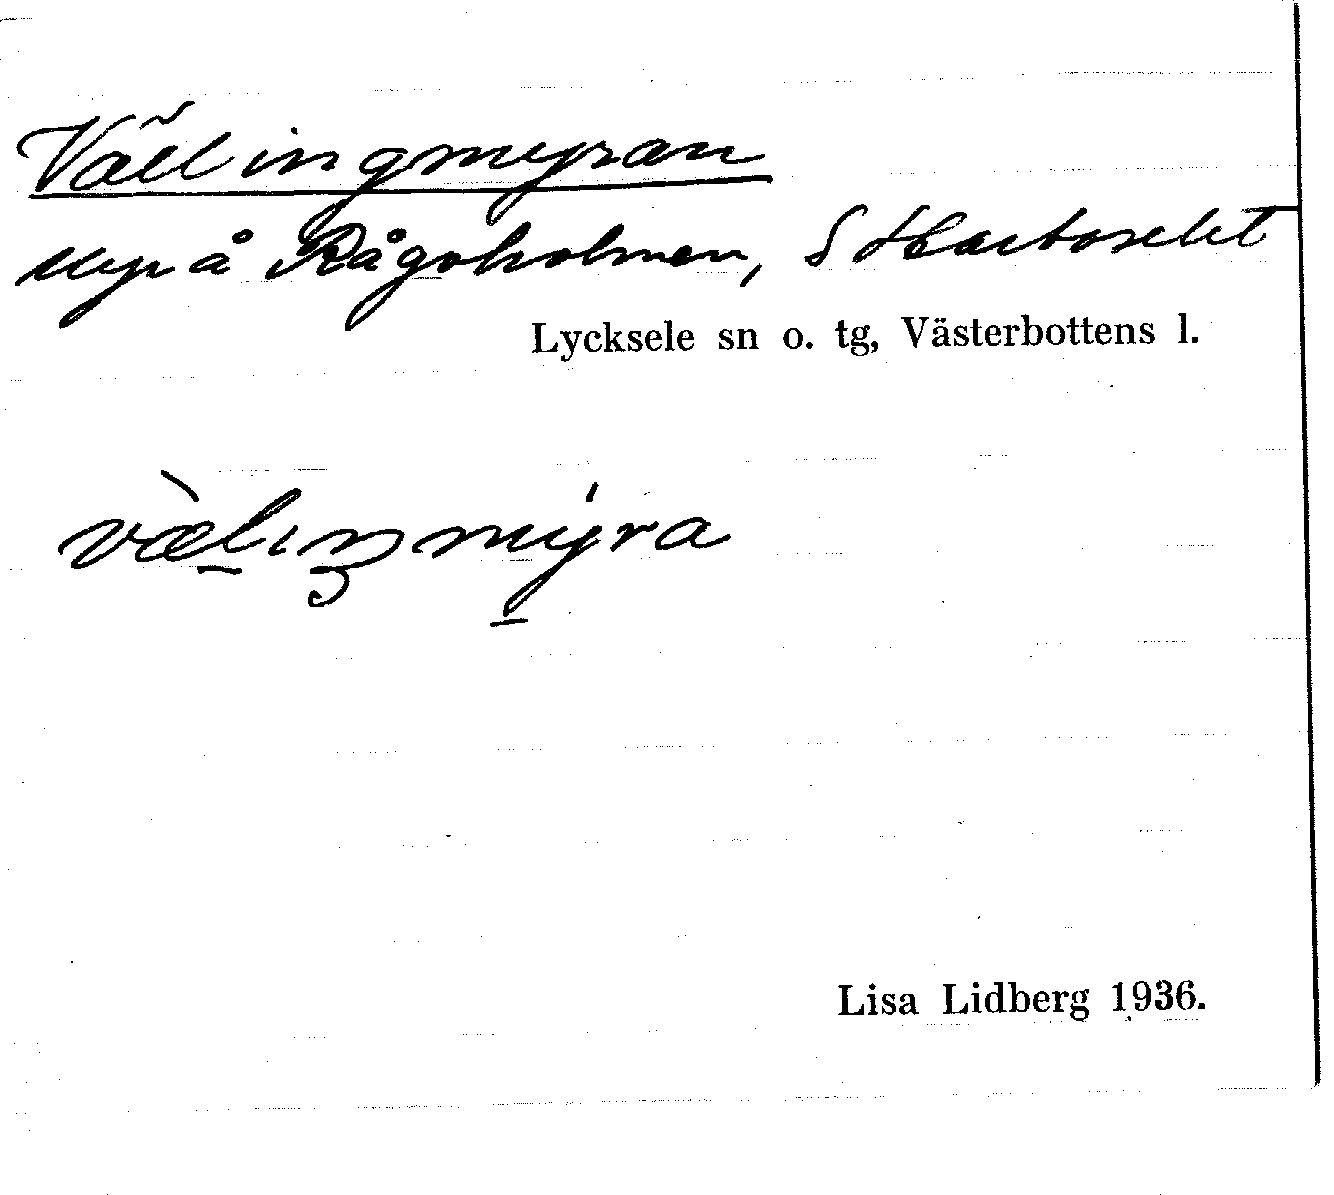 Vällingmyran
myr å Rågoholmen, S
Lycksele sn o. tg, Västerbottens l.
væ̀lıŋmýra
Lisa Lidberg 1936.